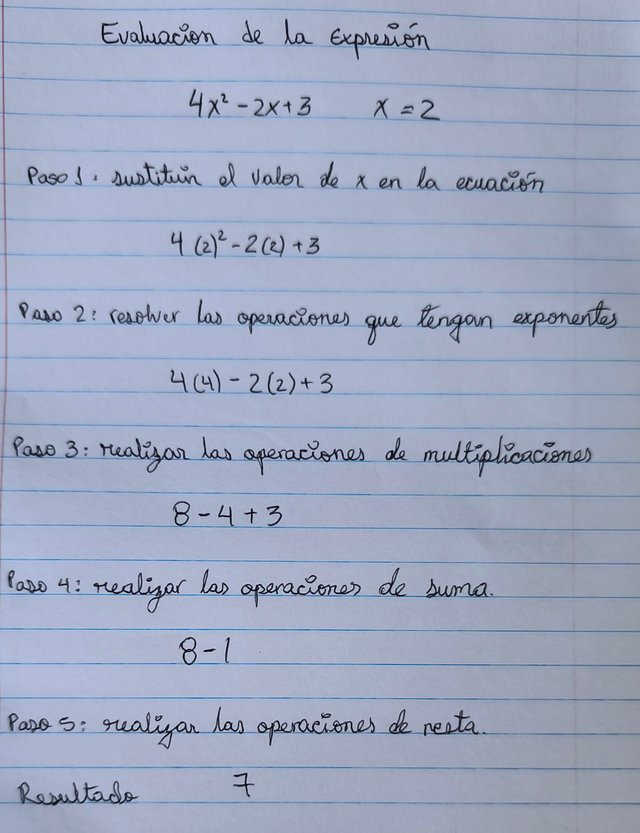 Evaluacion de la Expresión
4x² - 2x + 3 x = 2
Paso 1: sustituir el valor de x en la ecuación
4(2)² - 2(2) + 3
Paso 2: resolver las operaciones que tengan exponentes
4(4) - 2(2) + 3
Paso 3: realizar las operaciones de multiplicaciones
8 - 4 + 3
Paso 4: realizar las operaciones de suma.
8 - 1
Paso 5: realizar las operaciones de resta.
Resultado 7